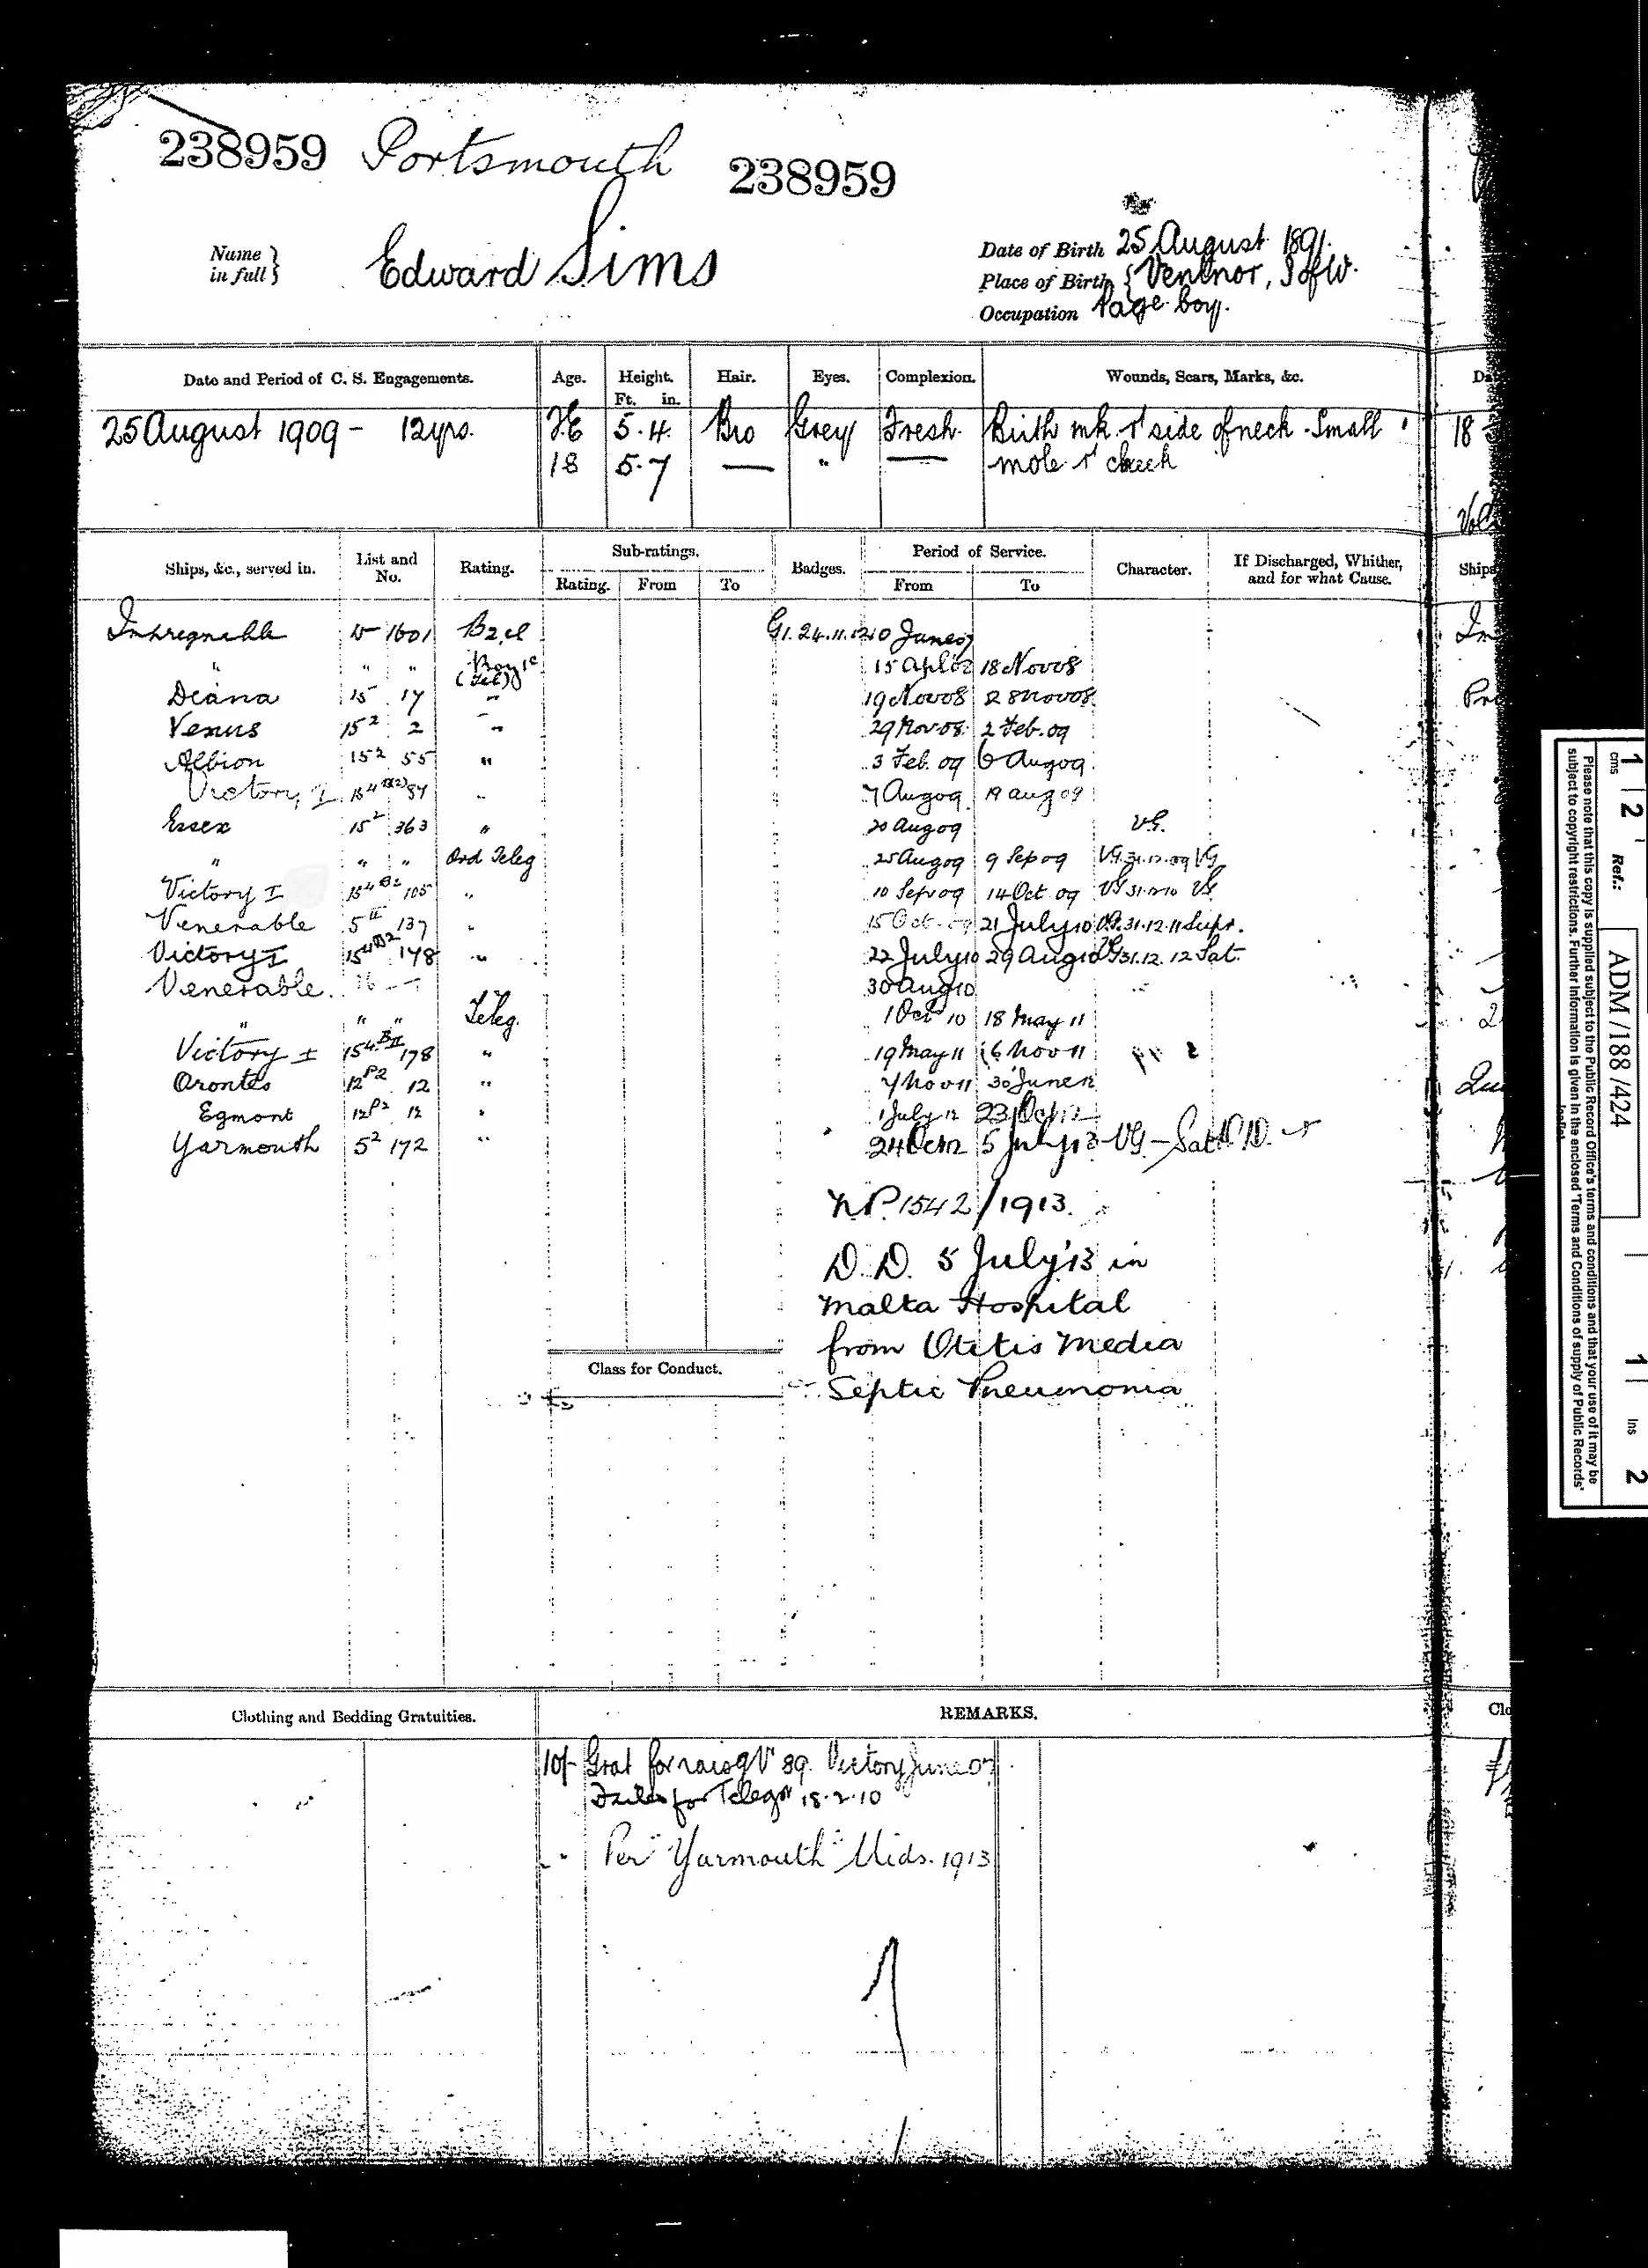 238959 Portsmouth 238959
Name in full } Edward Sims
Date of Birth 25 August 1891.
Place of Birth { Ventnor, I of W.
Occupation Page boy.
Date and Period of C. S. Engagements. Age. Height. Ft. in. Hair. Eyes. Complexion. Wounds, Scars, Marks, &c.
25 August 1909 - 12 yrs. 5.4. Bro Grey Fresh. Birth mk. rt side of neck. Small
18 5.7 — " — mole rt cheek
Ships, &c., served in. List and No. Rating. Sub-ratings. Rating. From To Badges. Period of Service. From To Character. If Discharged, Whither, and for what Cause.
Impregnable 15 1601 B2Cl G1. 24.11.12 10 June 07
" " " Boy 1c (Tel) 15 Apl 08 18 Nov 08
Diana 15 17 " 19 Nov 08 28 Nov 08
Venus 15² 2 " 29 Nov. 08 2 Feb. 09
Albion 15² 55 " 3 Feb. 09 6 Aug 09
Victory I 7 Aug 09 19 Aug 09
Essex 15² 363 " 20 Aug 09 V.G.
" " " Ord Teleg 25 Aug 09 9 Sep 09 V.G. 31.12.09 VG
Victory I 15⁴ᴮ² 105 " 10 Sep 09 14 Oct. 09 VG 31.12.10 VG
Venerable 5ᴵᴵ 137 " 15 Oct. 09 21 July 10 VG. 31.12.11 Supr.
Victory I 15⁴ᴮ² 148 " 22 July 10 29 Aug 10 VG 31.12.12 Sat.
Venerable 30 Aug 10
" " " Teleg. 1 Oct 10 18 May 11
Victory I 15⁴ᴮᴵᴵ 178 " 19 May 11 6 Nov 11
Orontes 12ᴾ² 12 " 7 Nov 11 30 June 12
Egmont 12ᴾ² 12 " 1 July 12 23 Oct 12
Yarmouth 5² 172 " 24 Oct 12 5 July 13 VG — Sat D.D.
N.P. 1542/1913.
D.D. 5 July '13 in
Malta Hospital
from Otitis Media
Septic Pneumonia
Class for Conduct.
Clothing and Bedding Gratuities. REMARKS.
10/- Grat for V 89. Victory June 07
Failed for Telegst 18.2.10
Per "Yarmouth" Mids. 1913
1 2
cms
Ref.: ADM/188/424
1 Ins 2
Please note that this copy is supplied subject to the Public Record Office's terms and conditions and that your use of it may be
subject to copyright restrictions. Further information is given in the enclosed 'Terms and Conditions of supply of Public Records'
leaflet